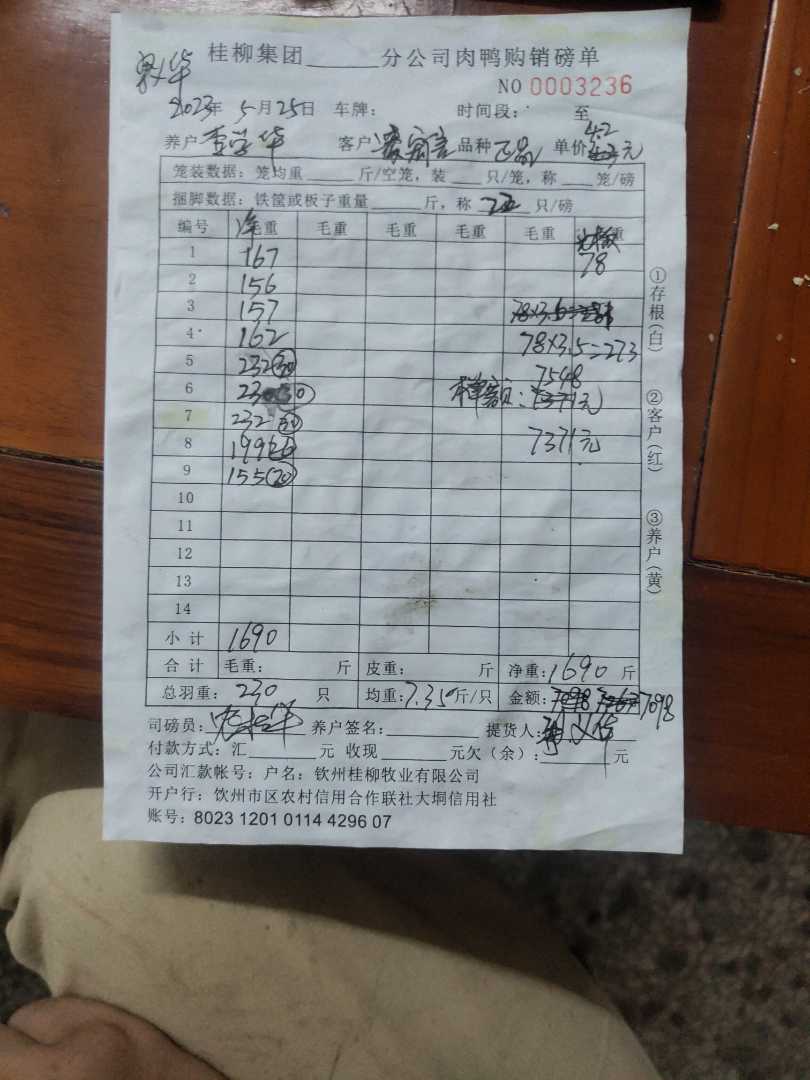 桂柳集团______分公司肉鸭购销磅单
华
NO 0003236
2023年 5月25日 车牌: 时间段: 至
养户 华 客户 品种 正品 单价 4.2 元
笼装数据: 笼均重____斤/空笼, 装___只/笼, 称___笼/磅
捆脚数据: 铁筐或板子重量____斤, 称____只/磅
编号 净重 毛重 毛重 毛重 毛重 重
1 167 78
2 156
3 157
4 162 78×3.5=273
5 232(30) 7548
6 23 (30) 额: 7371元
7 232(30) 7371元
8 199(26)
9 155(20)
10
11
12
13
14
小计 1690
合计 毛重: 斤 皮重: 斤 净重: 1690 斤
总羽重: 230 只 均重: 7.35斤/只 金额: 7098
司磅员: 养户签名:________ 提货人: 华
付款方式: 汇______元 收现______元欠(余):______元
公司汇款帐号: 户名: 钦州桂柳牧业有限公司
开户行: 饮州市区农村信用合作联社大垌信用社
账号: 8023 1201 0114 4296 07
①存根(白)
②客户(红)
③养户(黄)